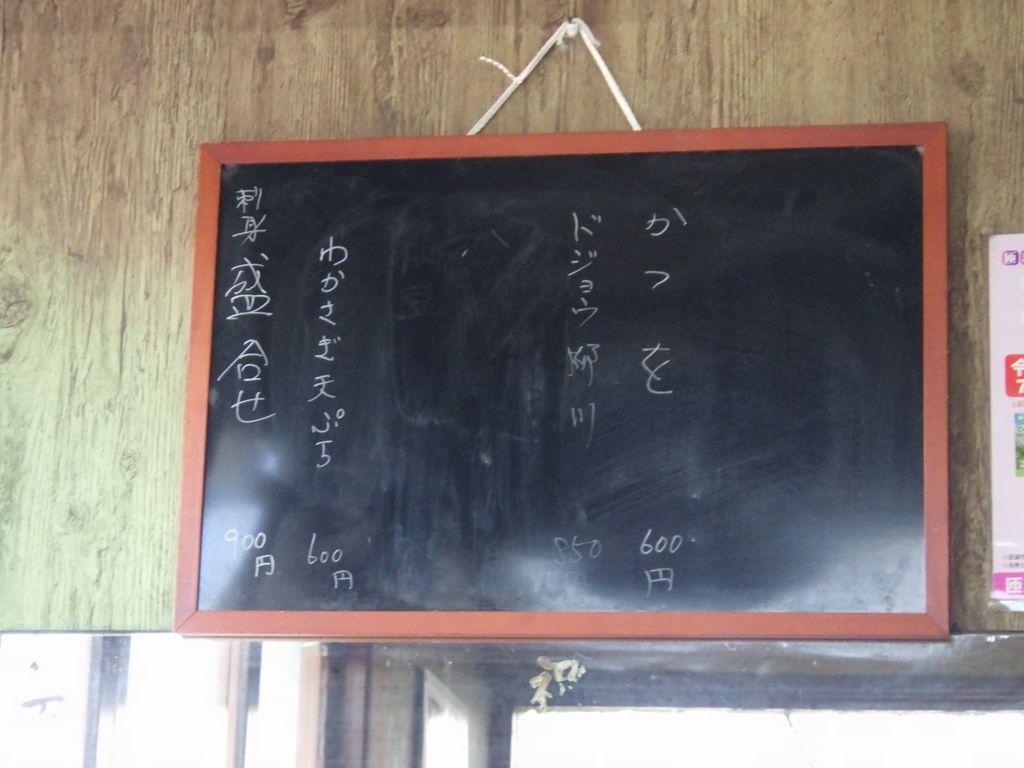 かつを 600円
ドジョウ柳川 850円
わかさぎ天ぷら 600円
刺身盛合せ 900円
祝